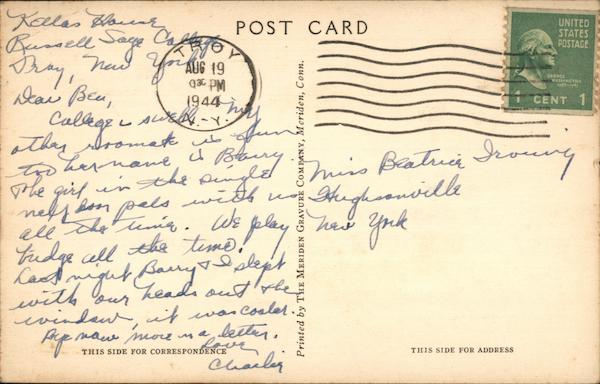 POST CARD
Kellas House
Russell Sage College
Troy, New York
Dear Bea,
College is swell. My
other roomate is fun
too her name is Barry.
The girl in the single
next door pals with us
all the time. We play
bridge all the time.
Last night Barry & I slept
with our heads out the
window, it was cooler.
Bye now, more in a letter.
Love
Charlie
THIS SIDE FOR CORRESPONDENCE
TROY
AUG 19
PM
1944
N.Y.
Printed by THE MERIDEN GRAVURE COMPANY, Meriden, Conn.
UNITED
STATES
POSTAGE
GEORGE
WASHINGTON
1 CENT 1
Miss Beatrice
Hughsonville
New York
THIS SIDE FOR ADDRESS